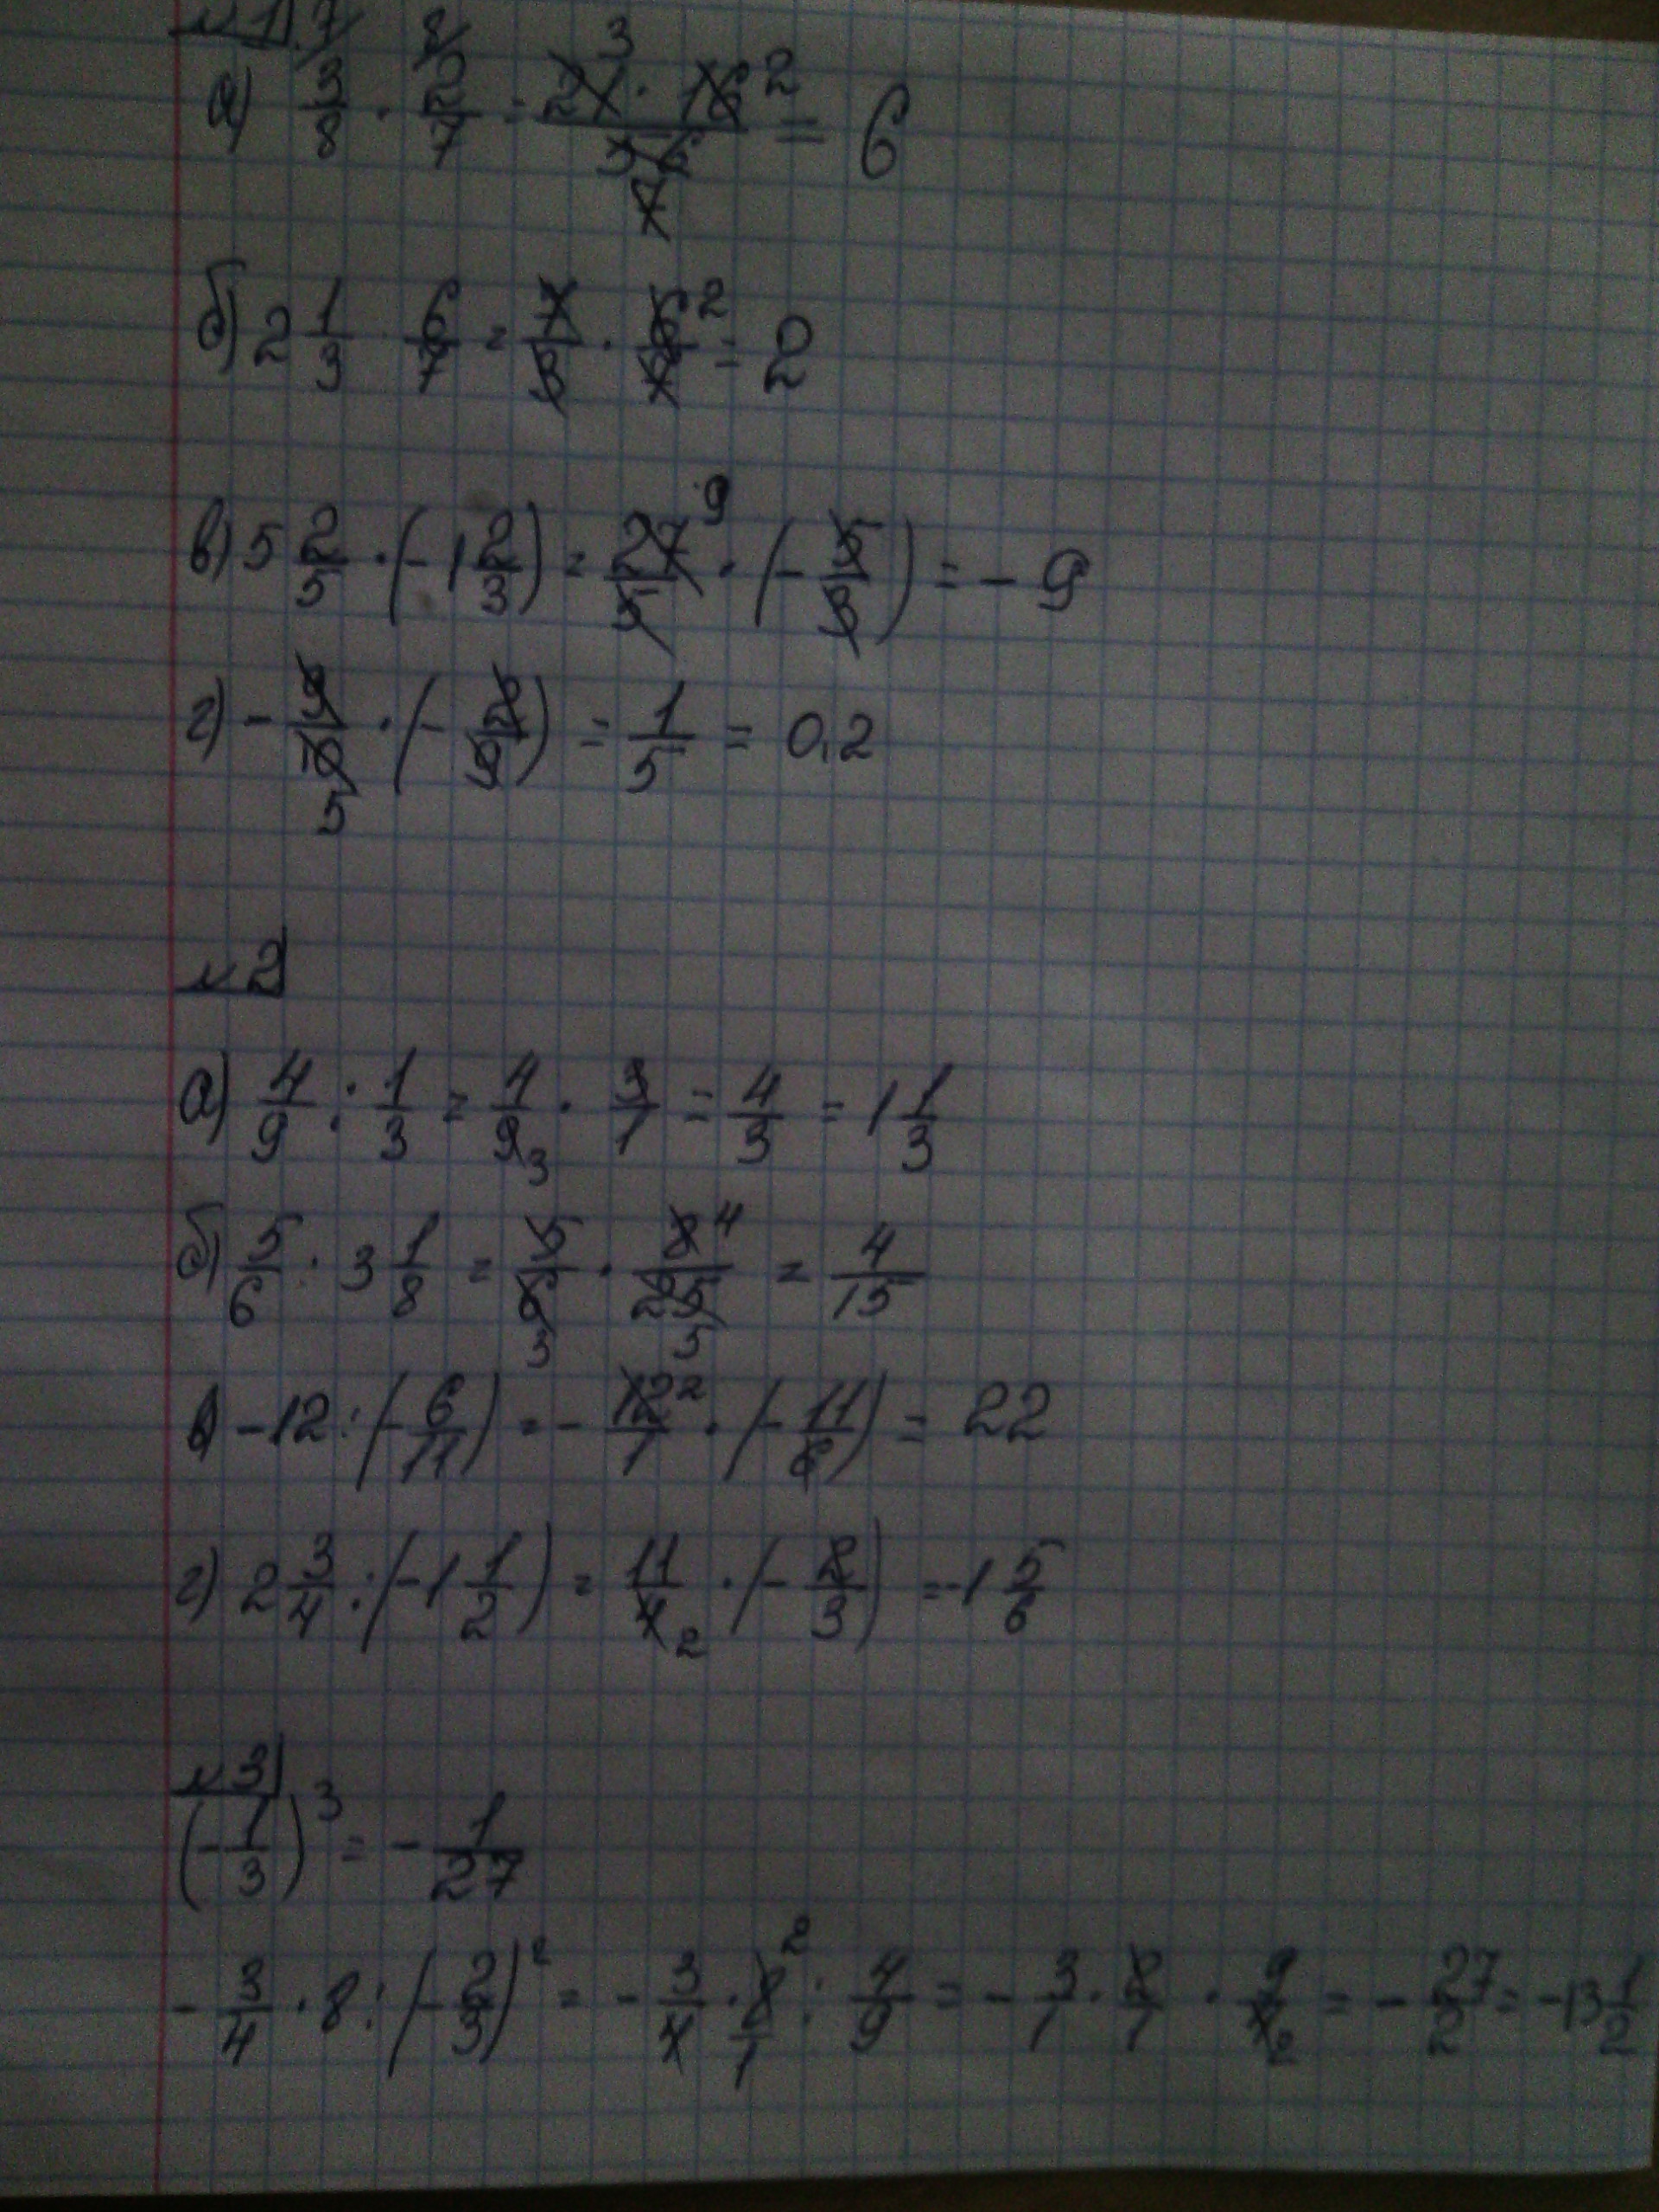 №1
а) 3/8 · 2/7 = 21 · 16 / 56 = 6
б) 2 1/3 · 6/7 = 7/3 · 6/7 = 2
в) 5 2/5 · (-1 2/3) = 27/5 · (- 5/3) = - 9
г) - 9/10 · (- 2/9) = 1/5 = 0,2
№2
а) 4/9 : 1/3 = 4/9 · 3/1 = 4/3 = 1 1/3
б) 5/6 : 3 1/8 = 5/6 · 8/25 = 4/15
в) -12 : (- 6/11) = - 12/1 · (- 11/6) = 22
г) 2 3/4 : (-1 1/2) = 11/4 · (- 2/3) = -1 5/6
№3
(- 1/3)³ = - 1/27
- 3/4 · 8 : (- 2/3)² = - 3/4 · 8/1 : 4/9 = - 3/1 · 2/1 · 9/4 = - 27/2 = -13 1/2